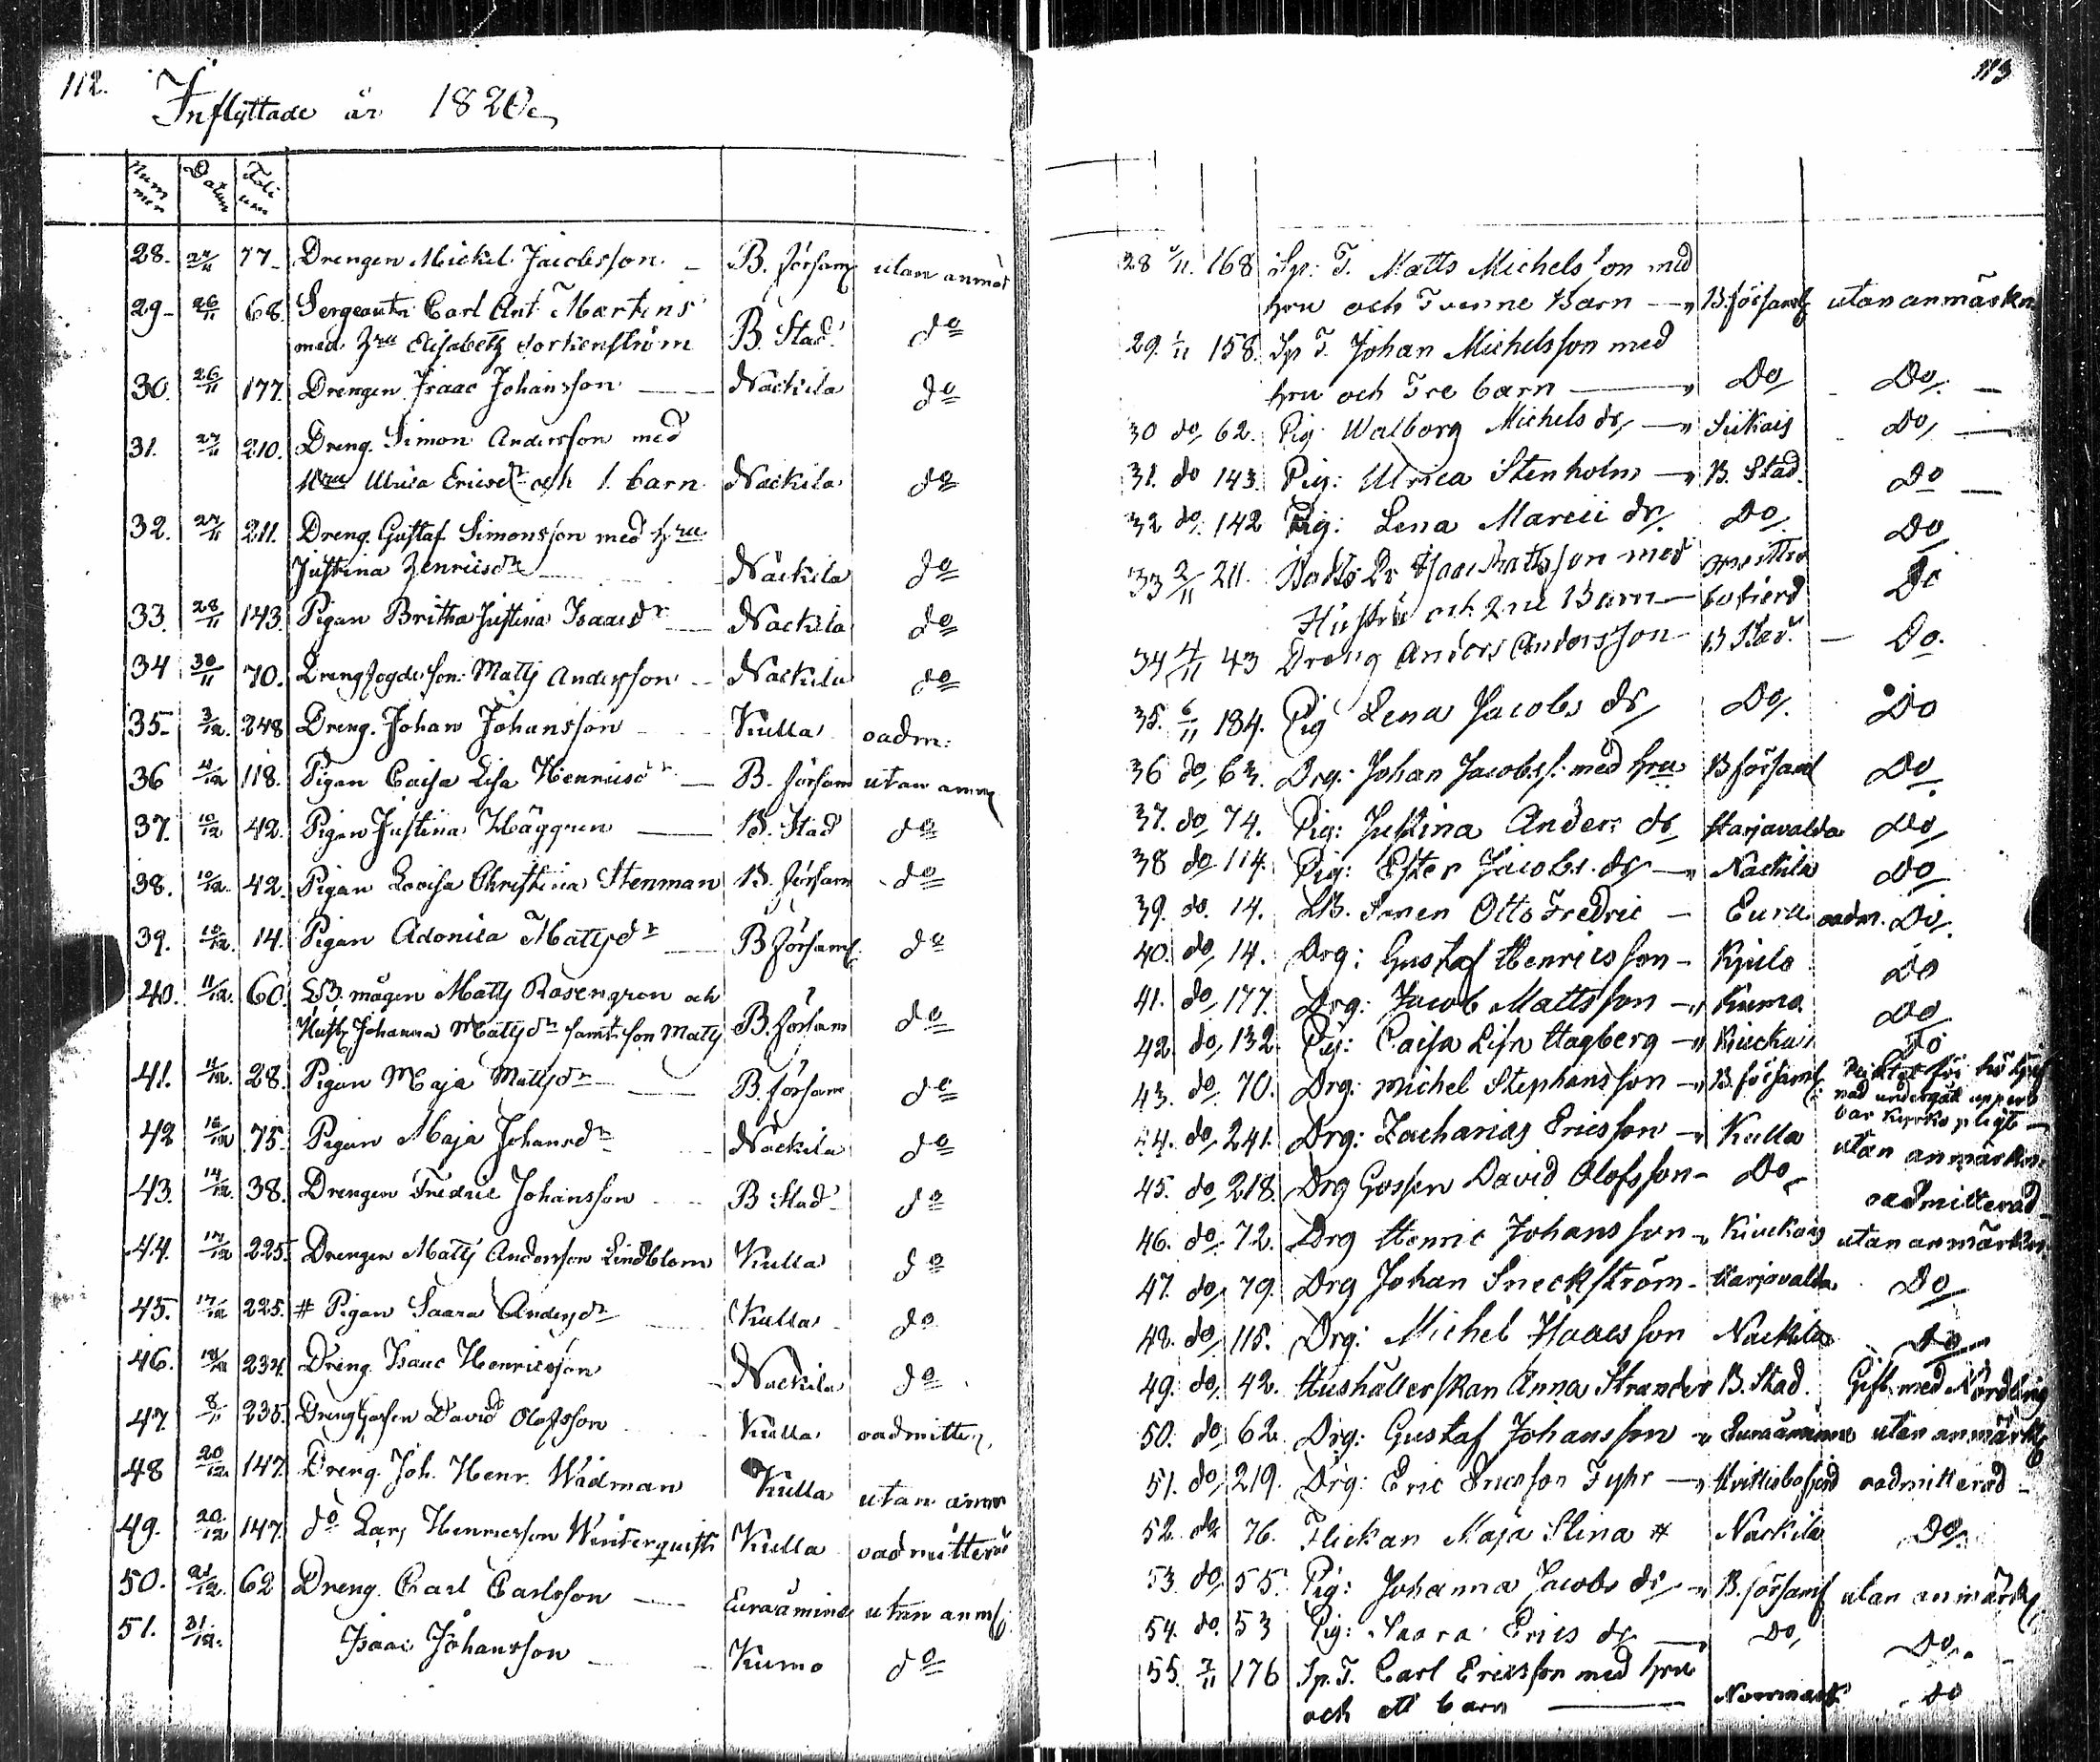 112.
Inflyttade år 1820
Num mer Datum Foli um
28. 24/11 77 Drengen Mickel Jacobsson B. försam utan anmär
29 26/11 68. Sergeanten Carl Ant. Martins
med Hru Elisabeth B. Stad do
30. 26/11 177. Drengen Isaac Johansson Nackila do
31. 27/11 210. Dreng. Simon Andersson med
Hru Ulrica Ericsdr och 1. barn Nackila do
32. 27/11 211. Dreng. Gustaf Simonsson med hru
Justina Henricsdr Nackila do
33. 28/11 143. Pigan Britha Justina Isaacsdr Nackila do
34 30/11 70. Matts Andersson Nackila do
35 3/12. 248 Dreng. Johan Johansson Kulla oadm:
36 /12 118. Pigan Caisa Lisa Henricsdr B. försam utan anm
37. 10/12 42. Pigan Justina Häggren B. Stad do
38. 10/12. 42. Pigan Lovisa Christina Stenman B. försam do
39. 10/12. 14. Pigan Adonica Mattsdr B församl do
40. 11/12. 60. LB. mågen Matts Rosengren och
Hustr Johanna Mattsdr samt son Matts B. försam do
41. 11/12. 28. Pigan Maja Mattsdr B. försam do
42 /12 75. Pigan Maja Johansdr Nackila do
43. 14/12. 38. Drengen Fredric Johansson B Stad do
44. 17/12 225. Drengen Matts Andersson Lindblom Kulla do
45. 17/12 225. # Pigan Saara Andersdr Kulla do
46. /12 234. Dreng Isaac Henricsson Nackila do
47. 8/11 235. Dreng Gossen David Olofsson Kulla oadmitt
48 20/12. 147. Dreng. Joh. Henr. Widman Kulla utan anm
49. 20/12 147. do Lars Henricsson Winterquist Kulla oadmitterad
50. 21/12. 62 Dreng. Carl Carlsson Euraåminde utan anm
51. 31/12. Isaac Johansson Kumo do
113
28 /11. 168 Sp: T. Matts Michelsson med
hru och Tvenne Barn B. församl utan anmärkn
29. 1/11 158. Sp T. Johan Michelsson med
hru och Tre barn Do Do
30 do 62. Pig Walborg Michels dr Do
31. do 143. Pig: Ulrica Stenholm B. Stad. Do
32 do 142 Pig: Lena Marcii dr. Do Do
33 2/11 211. Isaac Mattsson med
Hustru och 2ne Barn Do
34 4/11 43 Dreng Anders Andersson B Stad. Do.
35. 6/11 184. Pig Lena Jacobs dr Do. Do
36 do 63. Drg: Johan Jacobss: med hru B församl Do
37. do 74. Pig: Justina Anders dr Harjavalda Do
38 do 114. Pig: Ester Jacobs dr Nackila Do
39. do. 14. LB. Sonen Otto Fredric Eura oadm. Do.
40. do 14. Drg: Gustaf Henricsson Kjulo Do
41. do 177. Drg: Jacob Mattsson Kumo Do
42. do 132. Pig: Caisa Lisa Hagberg Kiuckais Do
43. do 70. Drg: Michel Stephansson B. församl:
uppen
bar kyrko pligt
44. do 241. Drg: Zacharias Ericsson Kulla utan anmärkn.
45. do 218. Drg Gossen David Olofsson Do oadmitterad
46. do 72. Drg Henric Johansson Kiuckais utan anmärkn
47. do 79. Drg Johan Sneckström Harjavalda Do
48. do 115. Drg: Michel Isaacsson Nackila Do
49. do 42. Hushållerskan Anna Strander B. Stad. Gift med Nordling
50. do 62. Drg: Gustaf Johansson Euraåminne utan anmärkn
51. do 219. Drg: Eric Ericsson Fyhr Hvittisbofjerd oadmitterad
52. do 76. Flickan Maja Stina # Nackila Do
53. do 55. Pig: Johanna Jacobs dr B. församl utan anmärkn
54. do. 53 Pig: Saara Erics dr Do Do.
55. 7/11 176 Sp. T. Carl Ericsson med hru
och ett barn Norrmark do